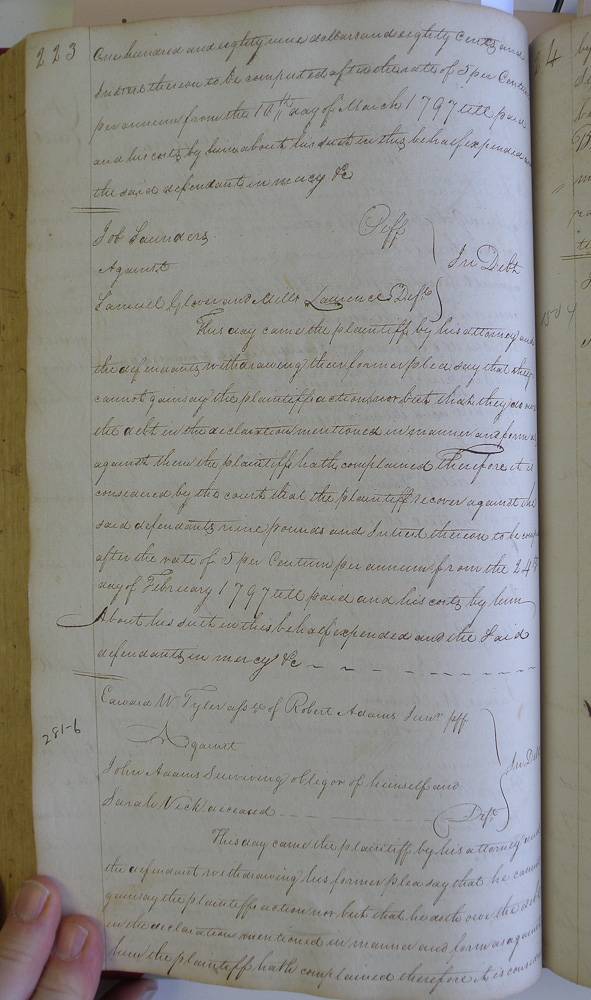 223
One hundred and eighty nine dollars and eighty Cents and
Interest thereon to be computed after the rate of 5 per Centum
per annum from the 10th day of March 1797 till paid
and his costs by him about his suit in this behalf expended and
the said defendants in mercy &c
Job Saunders Plff
Against
In Debt
Samuel Glover and Mills Laurence Defts
This day came the plaintiff by his attorney and
the defendants withdrawing their former plea say that they
cannot gainsay the plaintiffs action nor but that they do owe
the debt in the declaration mentioned in manner and form as
against them the plaintiff hath complained Therefore it is
considered by the court that the plaintiff recover against the
said defendants nine pounds and Interest thereon to be comp
after the rate of 5 per Centum per annum from the 24th
day of February 1797 till paid and his costs by him
About his suit in this behalf expended and the Said
defendants in mercy &c
281-6
Edward W Tyler assee of Robert Adams Junr plf
Against
In Debt
John Adams Surviving obligor of himself and
Sarah Vick deceased Deft
This day came the plaintiff by his attorney and
the defendant withdrawing his former plea say that he cannot
gainsay the plaintiffs action nor but that he doth owe the debt
in the declaration mentioned in manner and form as against
him the plaintiff hath complained therefore it is consid